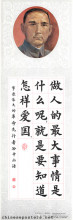 做人的最大事情是
什么呢就是要知道
怎样爱国
chineseposters.net